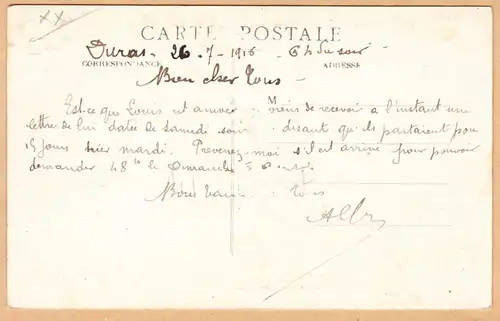 XX.
CARTE POSTALE
Duras - 26 - 7 - 1916 6 h du soir
CORRESPONDANCE
ADRESSE
Bien cher Tous
M
Est-ce que Louis est arrivé viens de recevoir à l'instant une
lettre de lui datée de Samedi soir disant qu'ils partaient pour
15 jours hier mardi. Prevenez-moi s'il est arrivé pour pouvoir
demander 48h le Dimanche
Tous